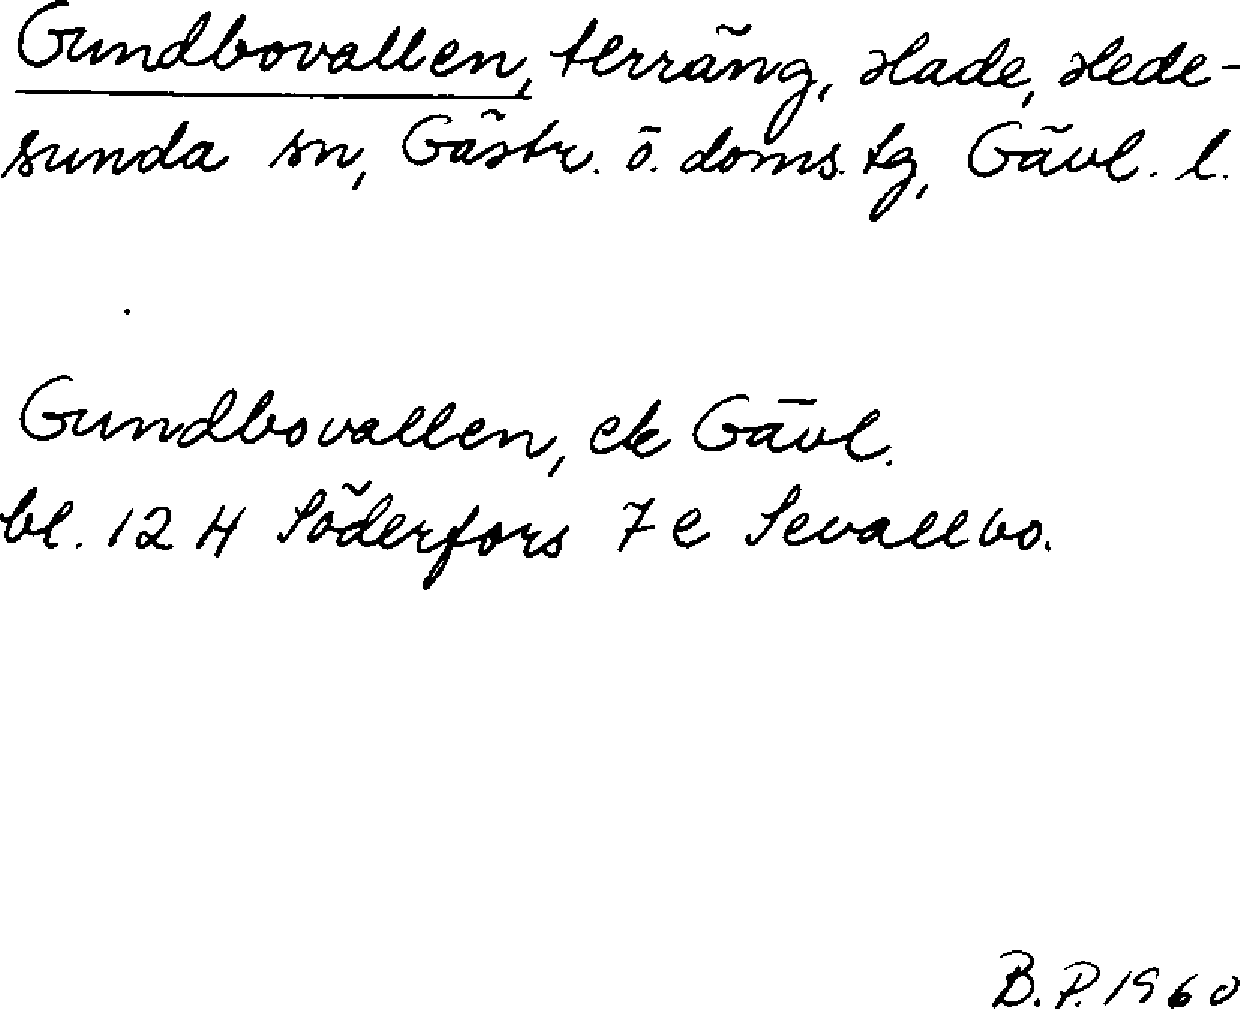 Gundbovallen, terräng, Hade, Hede-
sunda sn, Gästr. ö. doms. tg, Gävl. l.
Gundbovallen, ek Gävl.
bl. 12 H Söderfors 7 e Sevallbo.
B.P. 1960